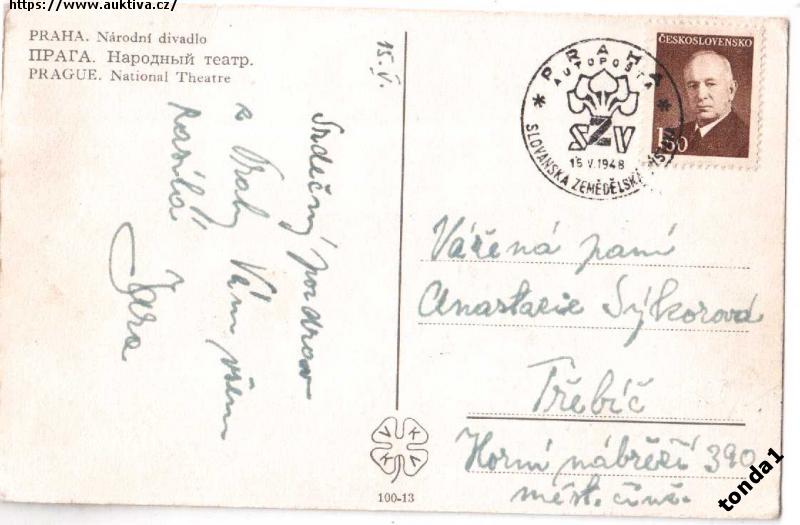 https://www.auktiva.cz/
PRAHA. Národní divadlo
ПРАГА. Народный театр.
PRAGUE. National Theatre
15.V.
Srdečný pozdrav
z Prahy Vám všem
posílá
Jara
100-13
PRAHA
AUTOPOŠTA
SZV
15.V.1948
SLOVANSKÁ ZEMĚDĚLSKÁ
ČESKOSLOVENSKO
1.50
Vážená paní
Anastazie Sýkorová
Třebíč
Horní nábřeží 390
měst. čínž.
tonda1